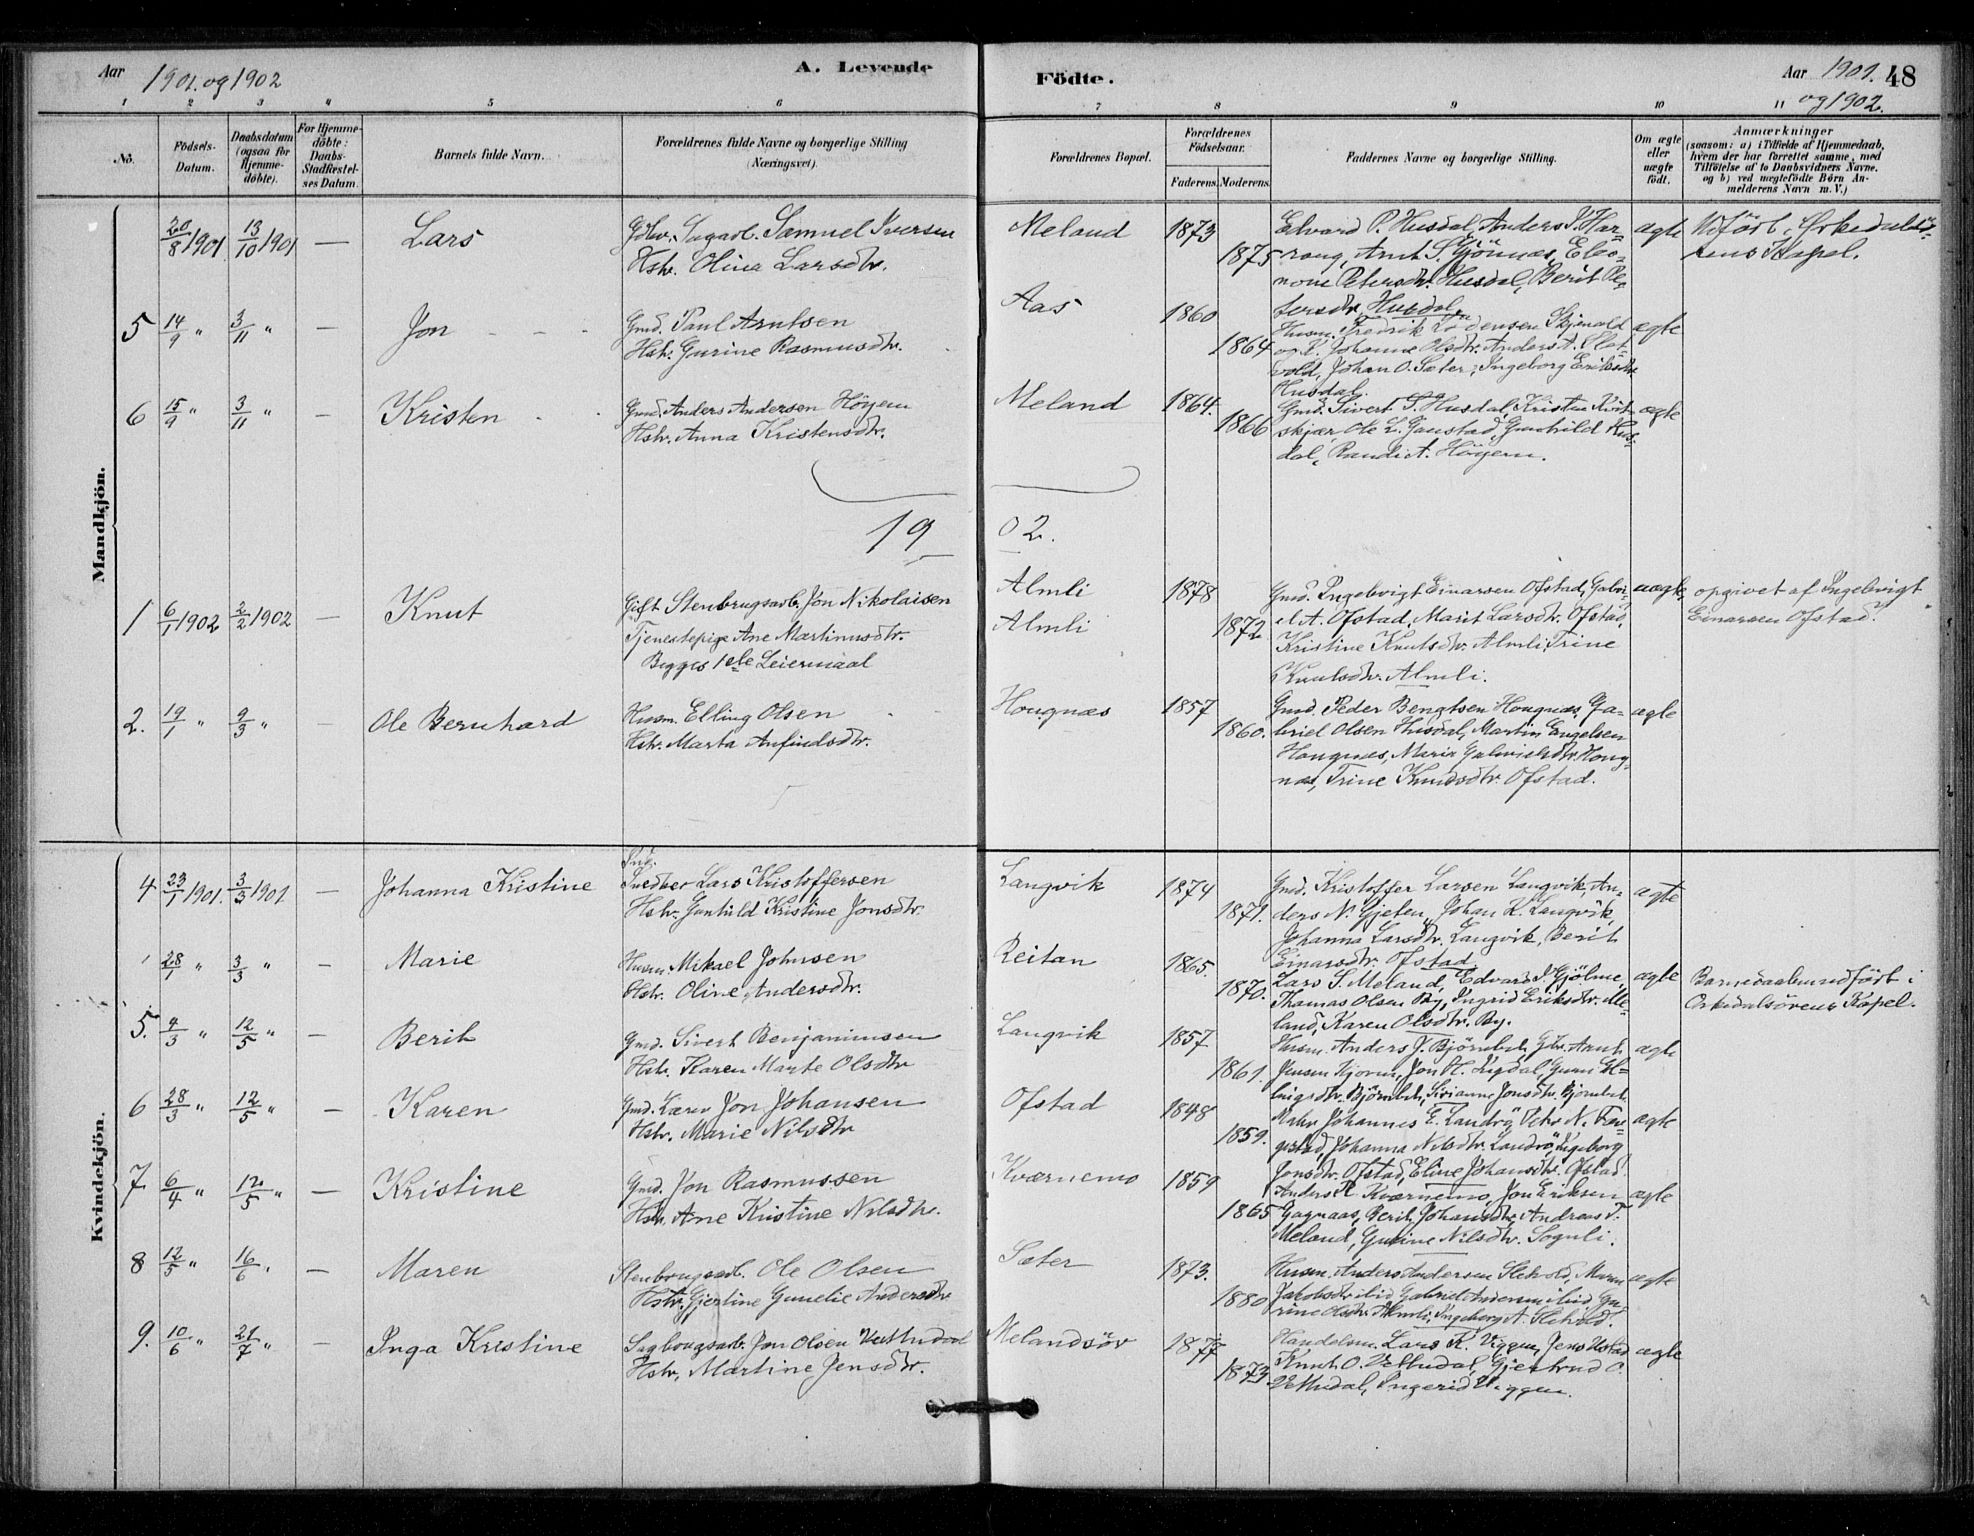 Aar 1901. og 1902
A. Levende
Födte.
Aar 1901. 48
og 1902.
1 2 3 4 5 6 7 8 9 10 11
No.
Födsels-Datum.
Daabsdatum (ogsaa for Hjemme-döbte).
For Hjemme-döbte: Daabs-Stadfæstel-ses Datum.
Barnets fulde Navn.
Forældrenes fulde Navne og borgerlige Stilling
(Næringsvei).
Forældrenes Bopæl.
Forældrenes Födselsaar.
Faderens. Moderens.
Faddernes Navne og borgerlige Stilling.
Om ægte eller uægte födt.
Anmærkninger
(saasom: a) i Tilfælde af Hjemmedaab,
hvem der har forrettet samme, med
Tilföielse af to Daabsvidners Navne.
og b) ved uægtefödte Börn An-
melderens Navn m. V.)
Mandkjön.
20/8 1901. 13/10 1901 — Lars
Samuel Iversen
Hstr. Olina Larsdtr.
Meland 1873 1875
Edvard P. Husdal, Anders
rang, Arnt S. Gjönnæs, Eleo-
nore Petersdtr. Husdal, Berit Pe-
tersdtr. Husdal
ægte
Kapel.
5 14/9 " 3/11 " — Jon
Gmd. Paul Arntsen
Hstr. Gurine Rasmusdtr.
Aas 1860 1864
Husm. Fredrik
og K. Johanne Olsdtr. Anders A.
vold, Johan O. Sæter, Ingeborg Eriksdtr.
Husdal.
ægte
6 15/9 " 3/11 " — Kristen
Gmd. Anders Andersen Höyem
Hstr. Anna Kristensdtr.
Meland 1864. 1866
Gmd. Sivert Husdal, Kristen
skjær, Ole L. Gaustad, Gunhild Hus-
dal, Randi A. Höyem.
ægte
19 02.
1 6/1 1902 2/2 1902 — Knut
Gift Stenbrugsarb. Jon Nikolaisen
Tjenestepige Ane Martinusdtr.
Begges 1ste Leiermaal
Almli
Almli
1878 1872
Gmd. Ingebrigt Einarsen Ofstad, Gabri-
el A. Ofstad, Marit Larsdtr. Ofstad,
Kristine Knutsdtr. Almli, Trine
Knutsdtr. Almli.
uægte,
opgivet af Ingebrigt
Einarsen Ofstad.
2. 19/1 " 9/3 " — Ole Bernhard
Husm. Elling Olsen
Hstr. Marta Anfindsdtr.
Hougnæs 1857 1860.
Gmd. Peder Bengtsen Hougnæs, Ga-
briel Olsen Husdal, Martin Engelsen
Hougnæs, Marie Gabrielsdtr. Houg-
næs, Trine Knudsdtr. Ofstad.
ægte
Kvindekjön.
4 23/1 1901. 3/3 1901. — Johanna Kristine
Ind.
Lars Kristoffersen
Hstr. Gunhild Kristine Jonsdtr.
Langvik 1874 1871.
Gmd. Kristoffer Larsen Langvik, An-
ders N. Gjeten, Johan K. Langvik,
Johanna Larsdtr. Langvik, Berit
Einarsdtr. Ofstad.
ægte
28/1 " 3/3 " — Marie
Husm. Mikael Johnsen
Hstr. Oline Andersdtr.
Reitan 1865. 1870.
Lars S. Meland, Edvard Gjölme,
Thomas Olsen By, Ingrid Eriksdtr. Me-
land, Karen Olsdtr. By.
ægte
Barnedaaben udfört i
Orkedalsörens Kapel.
5. 9/3 " 12/5 " — Berit
Gmd. Sivert Benjaminsen
Hstr. Karen Marte Olsdtr
Langvik 1857 1861.
Husm. Anders J. Björnbet, Gbr. Arnt
Jensen Hjorun, Jon H. Ingdal, Guru El-
lingsdtr. Björnbet, Sirianna Jonsdtr. Björnbet.
ægte
6 28/3 " 12/5 " — Karen
Gmd. Lærer Jon Johansen
Hstr. Marie Nilsdtr
Ofstad 1848 1859.
Johannes E. Landrö, Petr. N.
Johanna Nilsdtr. Landrö, Ingeborg
Jonsdtr. Ofstad, Eline Johansdtr. Ofstad
ægte
7 6/4 " 12/5 " — Kristine
Gmd. Jon Rasmussen
Hstr. Ane Kristine Nilsdtr.
Kværnemo 1859 1865
Anders R. Kværnemo, Jon Eriksen
Gagnaas, Berit Johansdtr. Andreas T.
Meland, Gurine Nilsdtr. Sognli.
ægte
8 12/5 " 16/6 " — Maren
Stenbrugsarb. Ole Olsen
Hstr. Gjertine Gunelie Andersdtr
Sæter 1873. 1880
Husm. Anders Andersen Sletvold, Maren
Jakobsdtr. ibid Gabriel Andersen ibid Gu-
rine Olsdtr. Almli, Ingeborg A. Sletvold.
ægte
9. 10/6 " 21/7 " — Inga Kristine
Sagbrugsarb. Jon Olsen Vuttudal
Hstr. Martine Jensdtr.
Melandsör 1877 1873
Handelsm. Lars K. Viggen, Jens Ustad
Knut O. Vuttudal, Gjertrud O.
Vuttudal, Ingerid Viggen.
ægte